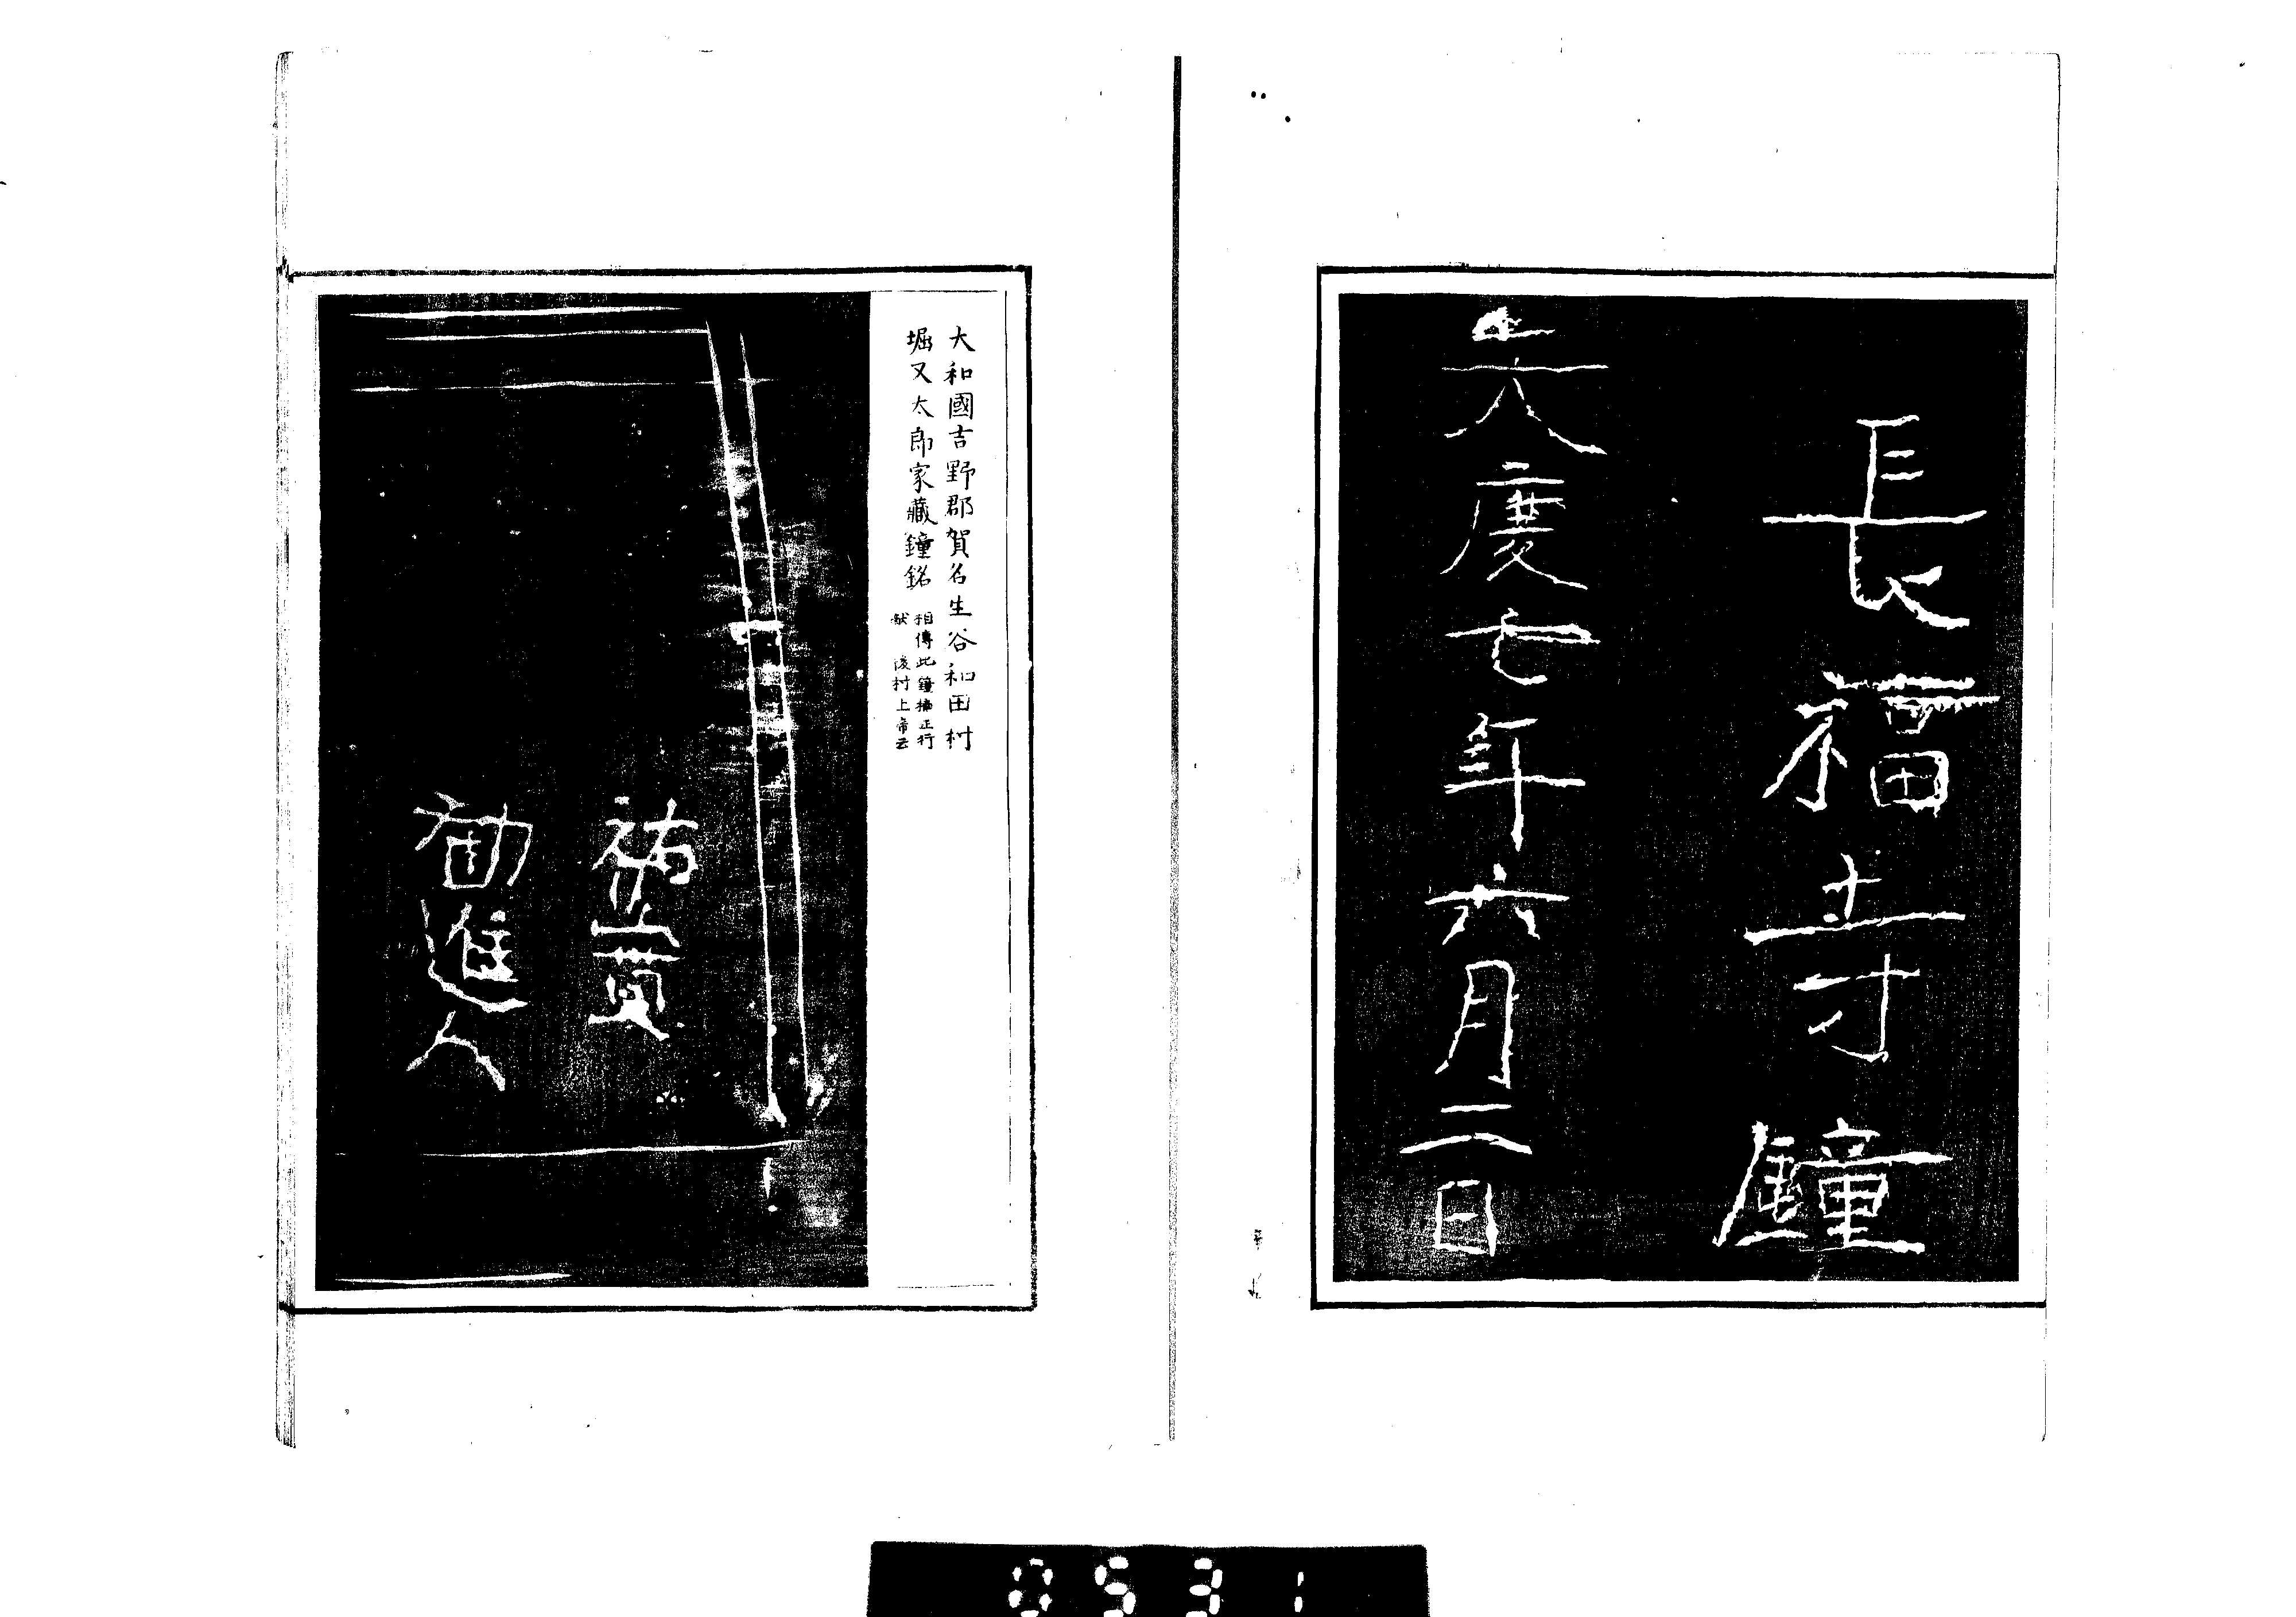 長福寺鐘
天慶七年六月二日
大和國吉野郡賀名生谷和田村
堀又太郎家藏鐘銘
相傳此鐘楠正行
獻 後村上帝云
祐
勧進人
0531